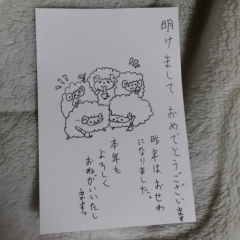 明けまして おめでとうございます
昨年は、おせわ
になりました。
本年も
よろしく
おねがいいたし
ます。